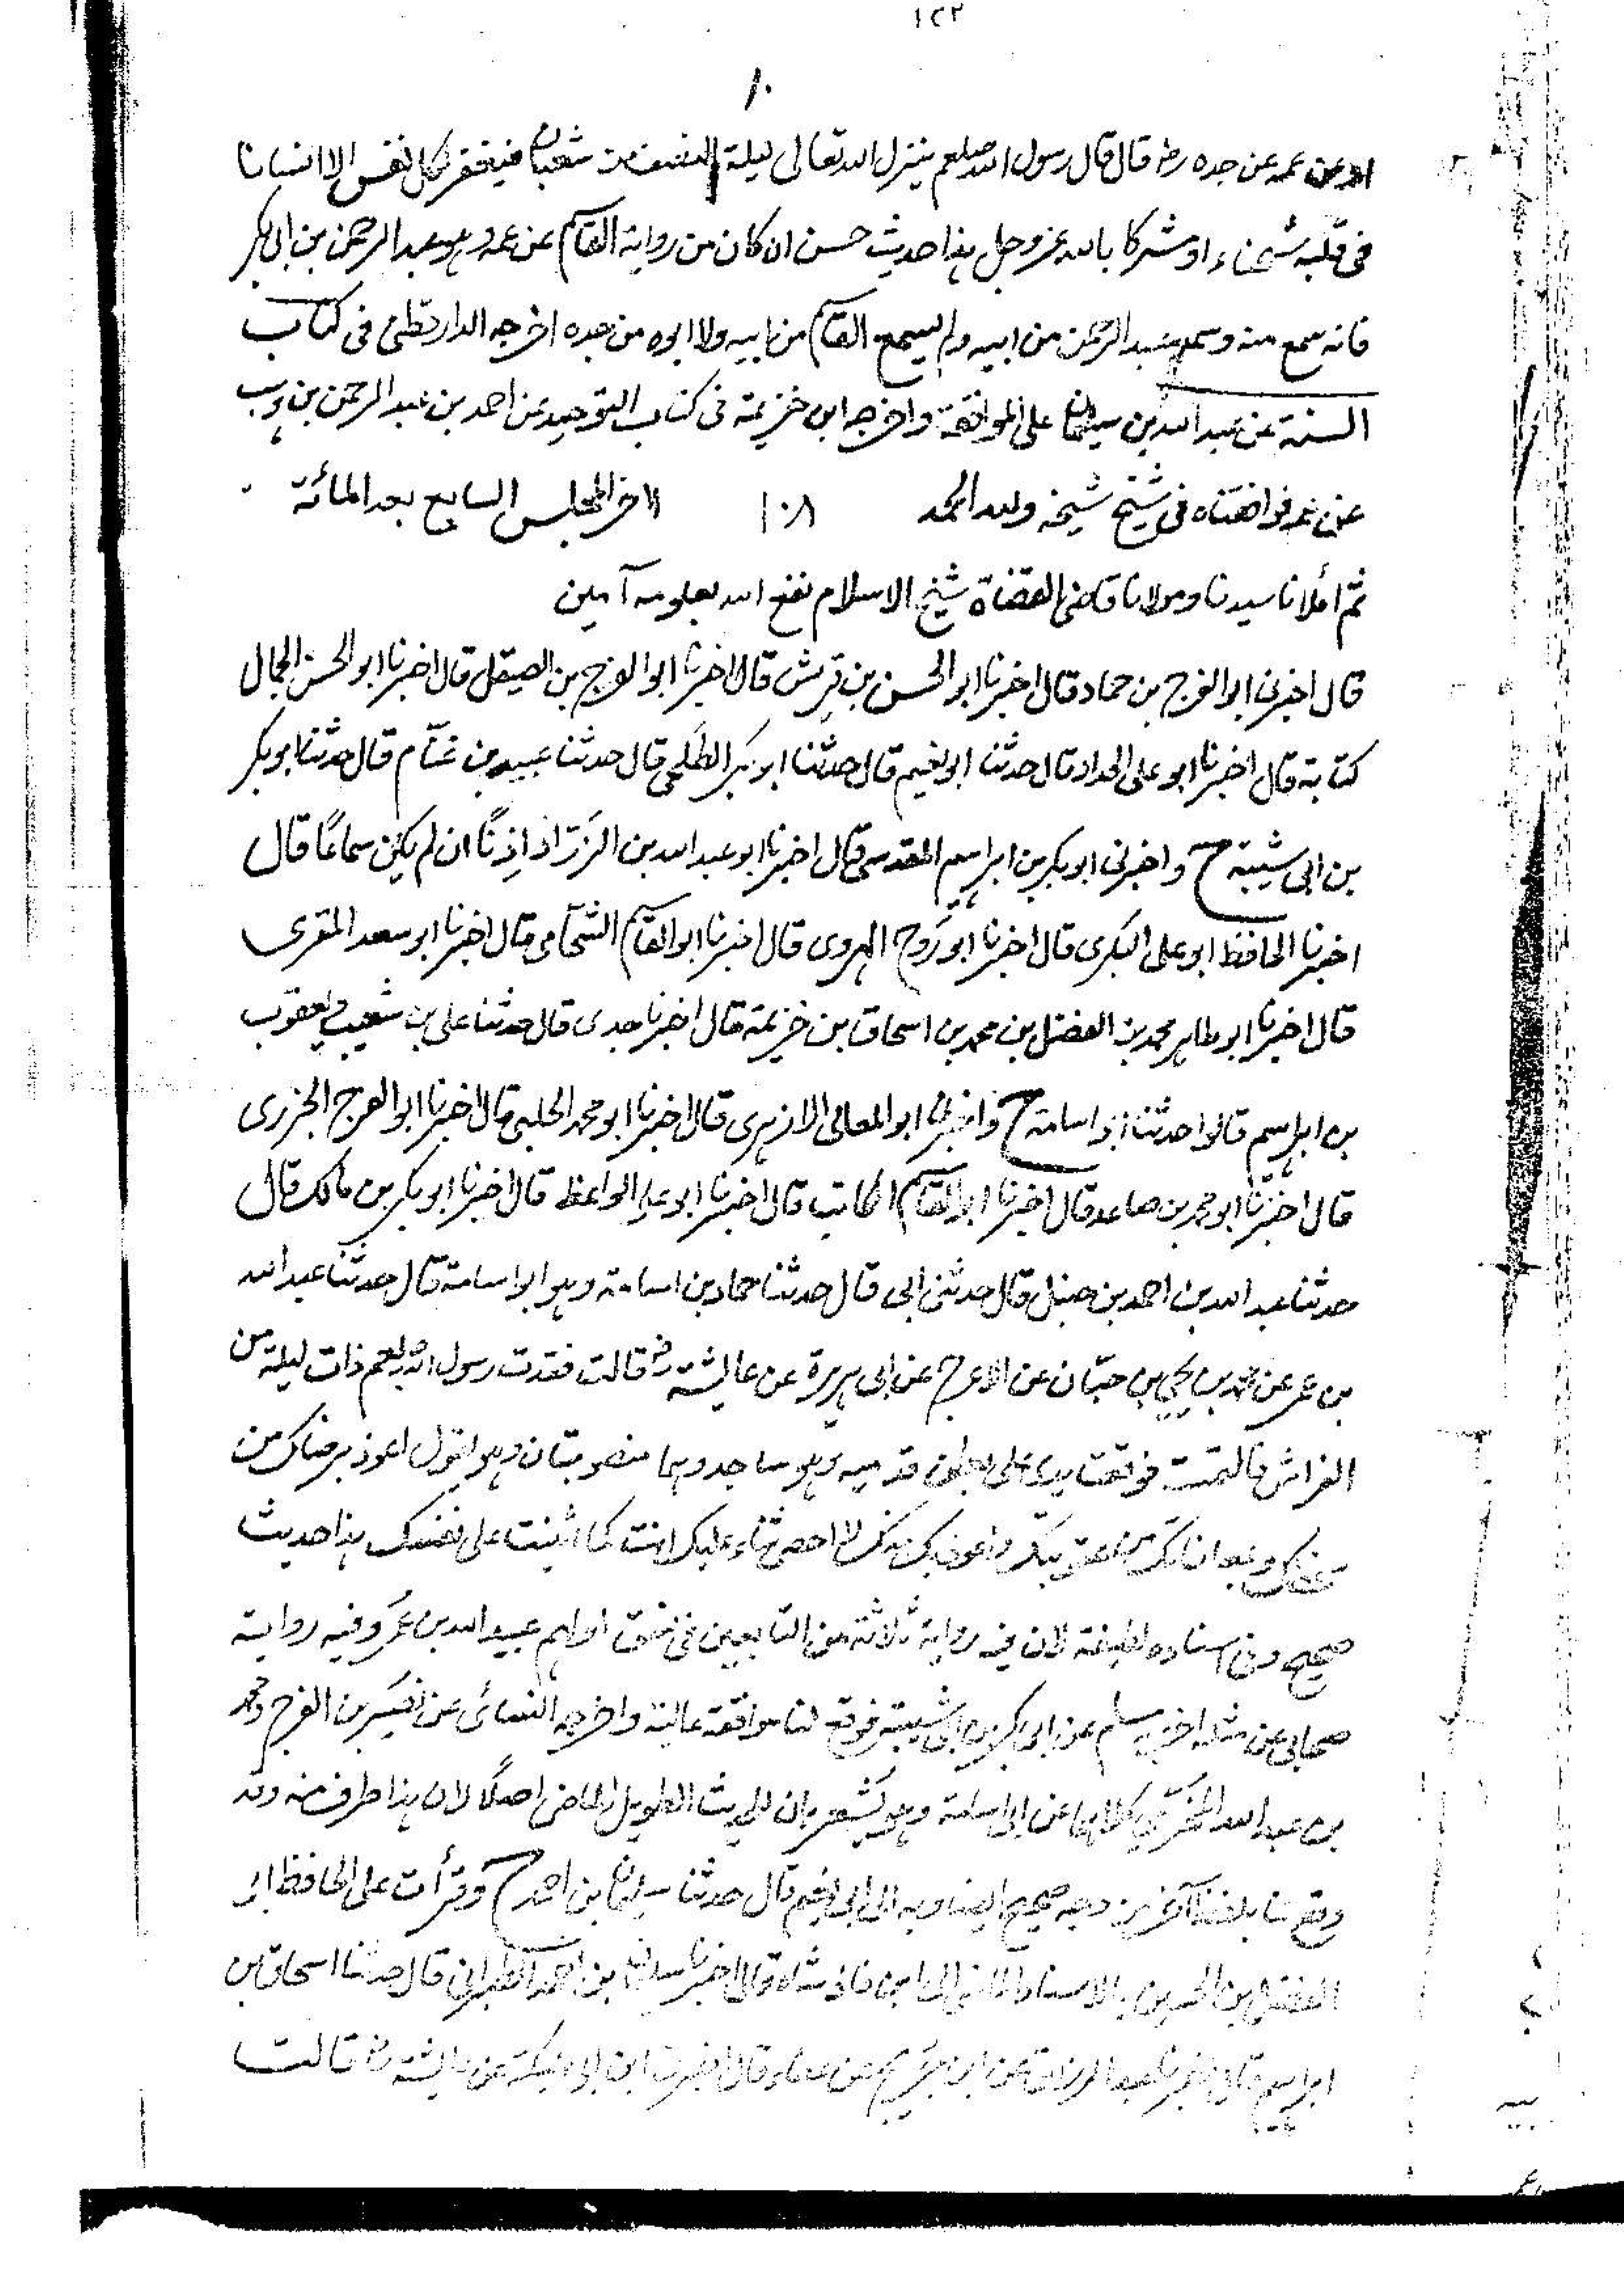 ١٢٢
١٠
او عن عمه عن جده رضہ قال قال رسول الله صلعم ينزل الله تعالى ليلة النصف من شعبان فيغفر لكل نفس الا انسانا
في قلبه شحناء او مشركا بالله عز وجل هذا حديث حسن ان كان من رواية القاسم عن عمه وهو عبد الرحمن بن ابي بكر
فانه سمع منه وسمع عبد الرحمن من ابيه ولم يسمع القاسم من ابيه ولا ابوه من جده اخرجه الدارقطني في كتاب
السنة عن عبد الله بن سليمان على الموافقة واخرجه ابن خزيمة في كتاب التوحيد عن احمد بن عبد الرحمن بن وهب
عن عمه فوافقناه في شيخ شيخه ولله الحمد ١٠٨ آخر المجلس السابع بعد المائة
ثم أملانا سيدنا ومولانا قاضي القضاة شيخ الاسلام نفع الله بعلومه آمين
قال اخبرني ابو الفرج بن حماد قال اخبرنا ابو الحسن بن قريش قال اخبرنا ابو الفرج بن الصيقل قال اخبرنا ابو الحسن الجمال
كتابة قال اخبرنا ابو علي الحداد قال حدثنا ابو نعيم قال حدثنا ابو بكر الطلحي قال حدثنا عبيد بن غنّام قال حدثنا ابو بكر
بن ابي شيبة ح واخبرني ابو بكر بن ابراهيم المقدسي قال اخبرنا ابو عبد الله بن الزرّاد اِذنًا ان لم يكن سماعًا قال
اخبرنا الحافظ ابو علي البكري قال اخبرنا ابو رَوح الهروي قال اخبرنا ابو القاسم الشحامي قال اخبرنا ابو سعد المقرى
قال اخبرنا ابو طاهر محمد بن الفضل بن محمد بن اسحاق بن خزيمة قال اخبرنا جدى قال حدثنا علي بن شعيب ويعقوب
بن ابراهيم قالوا حدثنا ابو اسامة ح واخبرنا ابو المعالي الازهرى قال اخبرنا ابو محمد الحلبي قال اخبرنا ابو الفرج الجزرى
قال اخبرنا ابو محمد بن صاعد قال اخبرنا ابو القاسم الكاتب قال اخبرنا ابو علي الواعظ قال اخبرنا ابو بكر بن مالك قال
حدثنا عبد الله بن احمد بن حنبل قال حدثني ابي قال حدثنا حماد بن اسامة وهو ابو اسامة قال حدثنا عبد الله
بن عمر عن محمد بن يحيى بن حبّان عن الاعرج عن ابي هريرة عن عائشة رضہ قالت فقدت رسول الله صلعم ذات ليلة من
الفراش فالتمست فوقعت يدي على بطون قدميه وهو ساجد وهما منصوبتان وهو يقول اعوذ برضاك من
سخطك وبمعافاتك من عقوبتك واعوذ بك منك لا احصي ثناء عليك انت كما اثنيت على نفسك هذا حديث
صحيح وفي اسناده لطيفة لان فيه رواية ثلاثة من التابعين في نسق اولهم عبيد الله بن عمر وفيه رواية
صحابي عن مثله اخرجه مسلم عن ابي بكر بن ابي شيبة فوقع لنا موافقة عالية واخرجه النسائي عن نصير بن الفرج ومحمد
بن عبد الله المخرّمي كلاهما عن ابي اسامة وهو يُشعر بان للحديث الطويل الماضي اصلًا لان هذا طرف منه وقد
وقع لنا بلفظ آخر من وجه صحيح ايضا وبه الى ابي نعيم قال حدثنا سليمان بن احمد ح وقرأت على الحافظ ابي
الفضل بن الحسين بالاسناد الماضي الى ابن فاذشاه قال اخبرنا سليمان بن احمد الطبراني قال حدثنا اسحاق بن
ابراهيم قال اخبرنا عبد الرزاق عن ابن جريج عن عطاء قال اخبرني ابن ابي مليكة عن عائشة رضہ قالت